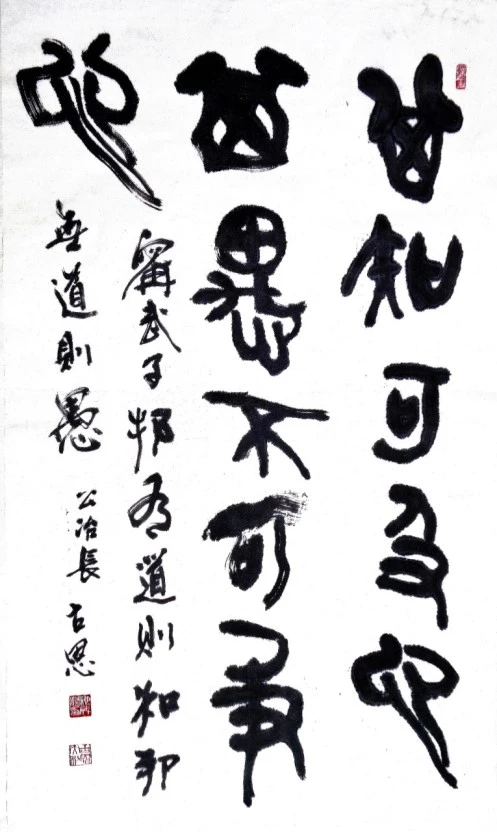 其知可及也
其愚不可及
也
甯武子邦有道則知邦
無道則愚 公冶長